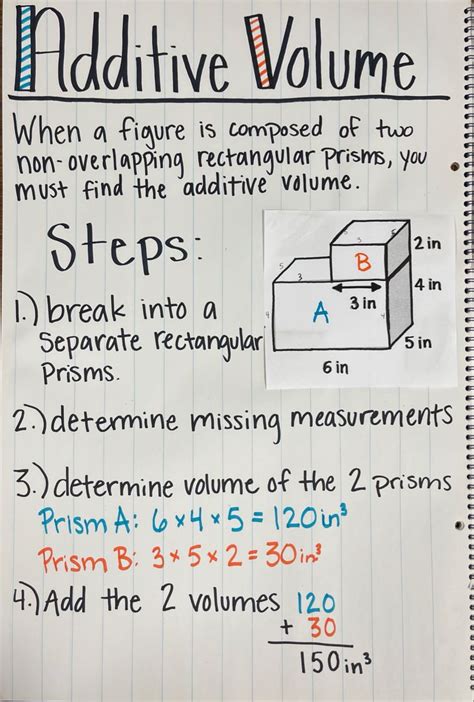 Additive Volume
When a figure is composed of two
non-overlapping rectangular prisms, you
must find the additive volume.
Steps:
1.) break into a
separate rectangular
prisms.
2 in
B
4 in
A
3 in
5 in
6 in
5
3
2.) determine missing measurements
3.) determine volume of the 2 prisms
Prism A: 6 × 4 × 5 = 120 in³
Prism B: 3 × 5 × 2 = 30 in³
4.) Add the 2 volumes 120
+ 30
150 in³